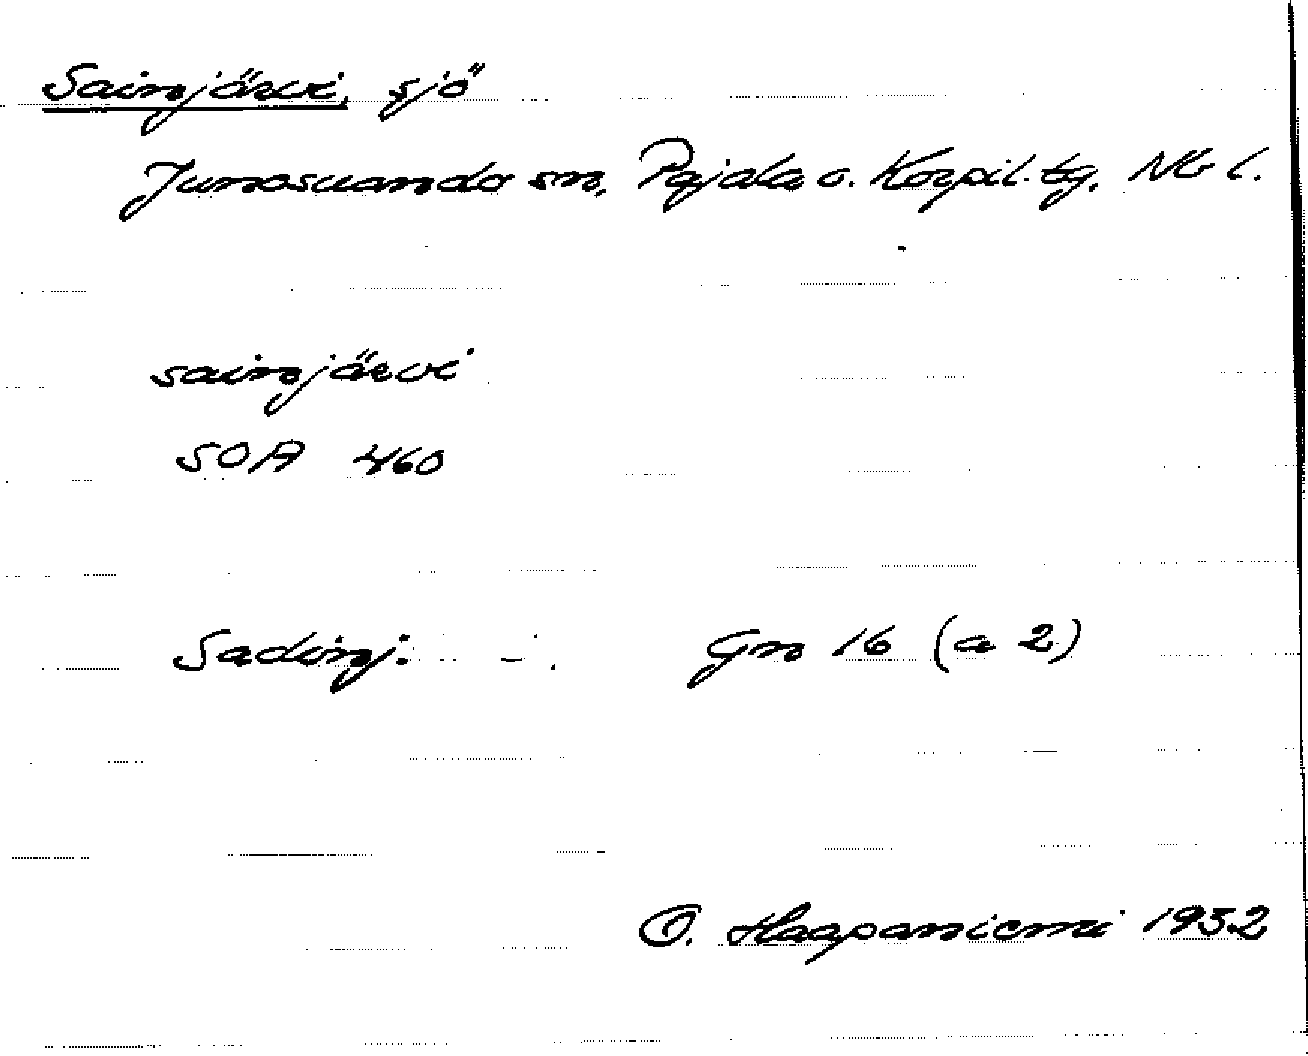 Sainjärvi, sjö
Junosuando sn, Pajala o. Korpil. tg, Nb l.
sainjärvi
SOA 460
Sadinj. Gn 16 (a 2)
O. Haapaniemi 1932